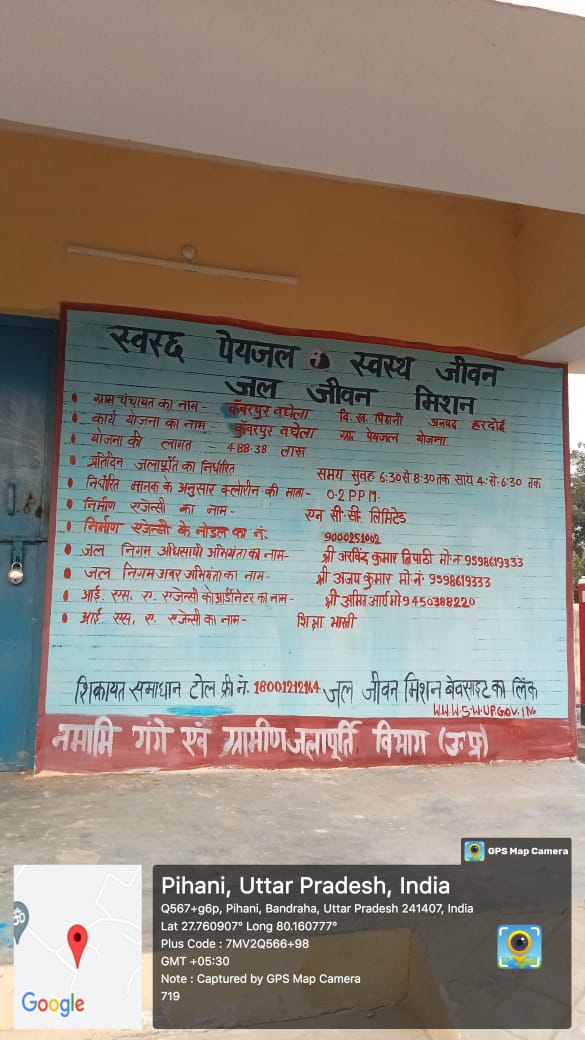 स्वस्छ पेयजल स्वस्थ जीवन
जल जीवन मिशन
ग्राम पंचायत का नाम- कुँवरपुर बघेला वि.ख. पिहानी जनपद हरदोई
कार्य योजना का नाम- कुँवरपुर बघेला ग्रा. पेयजल योजना
योजना की लागत - 488.38 लाख
प्रतिदिन जलापूर्ति का निर्धारित समय सुबह 6:30 से 8:30 तक सायं 4:से:6:30 तक
निर्धारित मानक के अनुसार क्लोरीन की मात्रा- 0.2 PPM.
निर्माण एजेन्सी का नाम- एन सी.सी. लिमिटेड
निर्माण एजेन्सी के नोडल का नं. 9000251002
जल निगम अधिसाशी अभियंता का नाम- श्री अरविंद कुमार त्रिपाठी मो.नं. 9598619333
जल निगम अवर अभियंता का नाम- श्री अजय कुमार मो.नं. 9598619333
आई. एस. ए. एजेन्सी कोआर्डिनेटर का नाम- श्री अमित आर्य मो 9450388220
आई. एस. ए. एजेन्सी का नाम- शिक्षा भारती
शिकायत समाधान टोल फ्री नं. 18001212164 जल जीवन मिशन बेवसाइट का लिंक
WWW.SWSUP.GOV.IN
नमामि गंगे एवं ग्रामीण जलापूर्ति विभाग (उ.प्र)
GPS Map Camera
Pihani, Uttar Pradesh, India
Q567+g6p, Pihani, Bandraha, Uttar Pradesh 241407, India
Lat 27.760907° Long 80.160777°
Plus Code : 7MV2Q566+98
GMT +05:30
Note : Captured by GPS Map Camera
719
Google